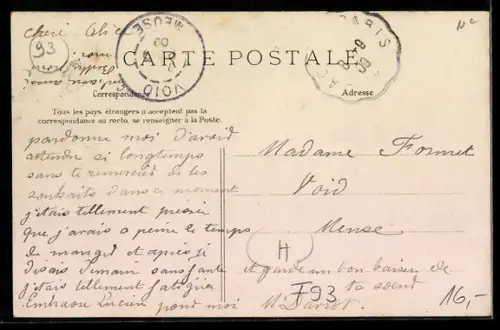 Chère Alice
93
VOID
MEUSE
09
PARIS
CARTE POSTALE
Correspondance
Adresse
Tous les pays étrangers n'acceptent pas la
correspondance au recto, se renseigner à la Poste.
pardonne moi d'avoir
attendu si longtemps
sans te remercier de tes
souhaits dans ce moment
j'étais tellement pressée
que j'avais a peine le temps
de manger et après je
disais demain sans faute
j'étais tellement fatiguée
Embrasse Lucien pour moi
et garde un bon baiser de
ta soeur
Madame
Void
Meuse
H
F93
16,-